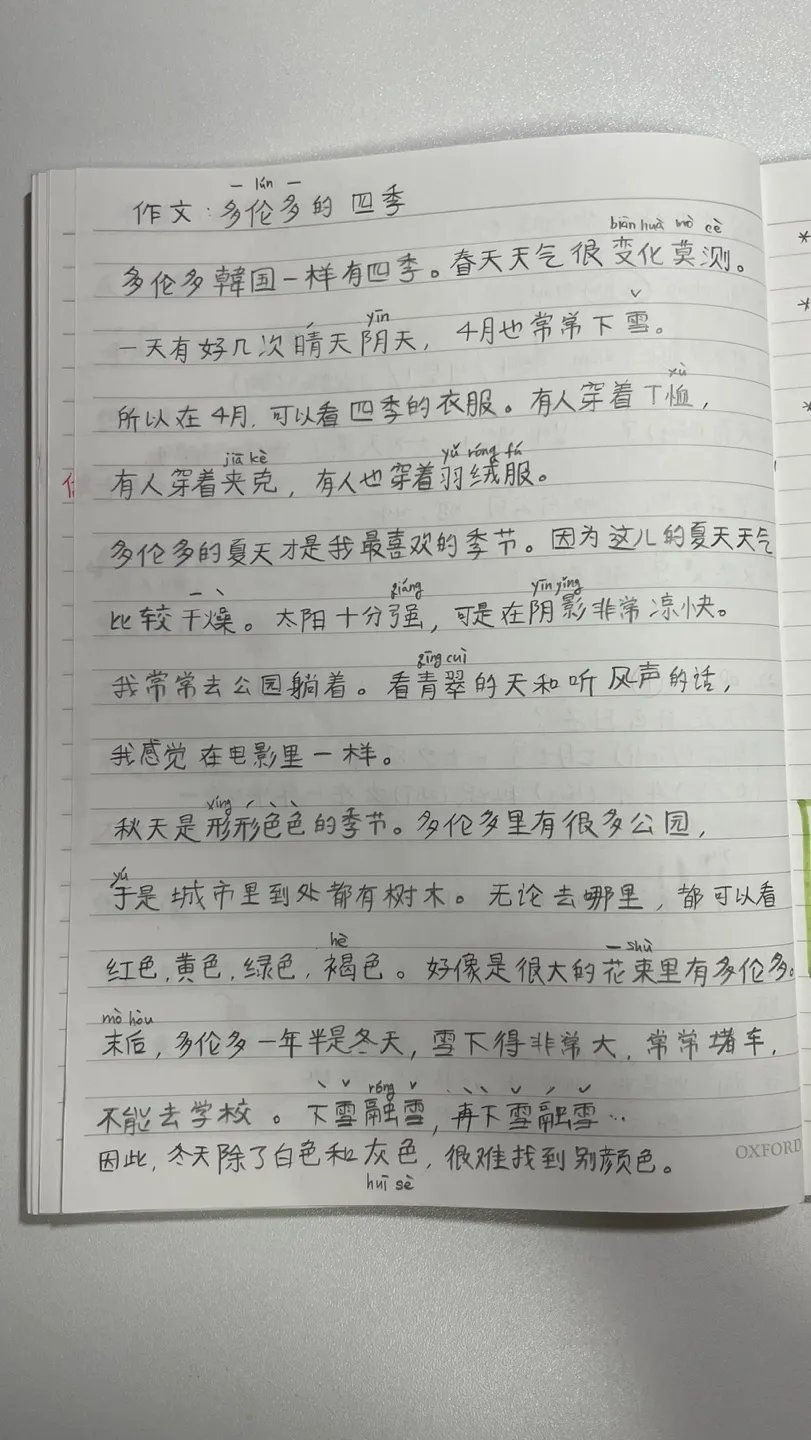 lún
作文:多伦多的四季
biàn huà mò cè
多伦多韓国一样有四季。春天天气很变化莫测。
yīn
一天有好几次晴天阴天, 4月也常常下雪。
xù
所以在4月,可以看四季的衣服。有人穿着T恤,
jiā kè yǔ róng fú
有人穿着夹克,有人也穿着羽绒服。
多伦多的夏天才是我最喜欢的季节。因为这儿的夏天天气
qiáng yīn yǐng
比较干燥。太阳十分强,可是在阴影非常凉快。
qīng cuì
我常常去公园躺着。看青翠的天和听风声的话,
我感觉在电影里一样。
xíng
秋天是形形色色的季节。多伦多里有很多公园,
yú
于是城市里到处都有树木。无论去哪里,都可以看
hè shù
红色,黄色,绿色,褐色。好像是很大的花束里有多伦多。
mò hòu
末后,多伦多一年半是冬天,雪下得非常大,常常堵车,
róng
不能去学校。下雪融雪,再下雪融雪…
因此,冬天除了白色和灰色,很难找到别颜色。
huī sè
OXFORD